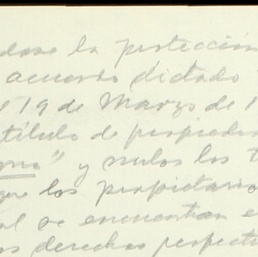 dose la protección
acuerdo dictado
el 19 de Marzo de 1
título de propiedad
" y nulos los t
que los propietario
al se encuentran e
os derechos respecti